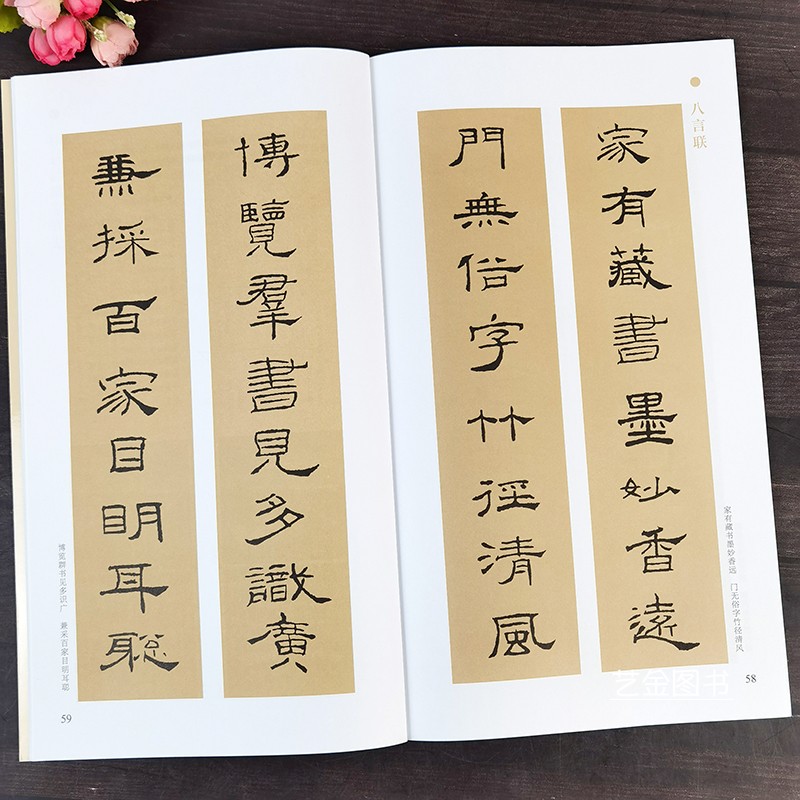 八言联
家有藏書墨妙香遠
門無俗字竹徑清風
家有藏书墨妙香远 门无俗字竹径清风
58
博覽羣書見多識廣
兼採百家目明耳聰
博览群书见多识广 兼采百家目明耳聪
59
艺金图书